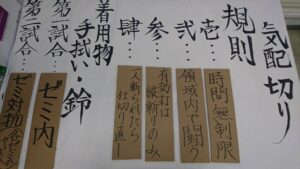 気配切り
規則
壱… 時間無制限
弐… 領域内で闘う
参… 有効打は縦斬りのみ
肆… 一人斬られたら仕切り直し
着用物
手拭い・鈴
第一試合… ゼミ内
第二試合… ゼミ対抗